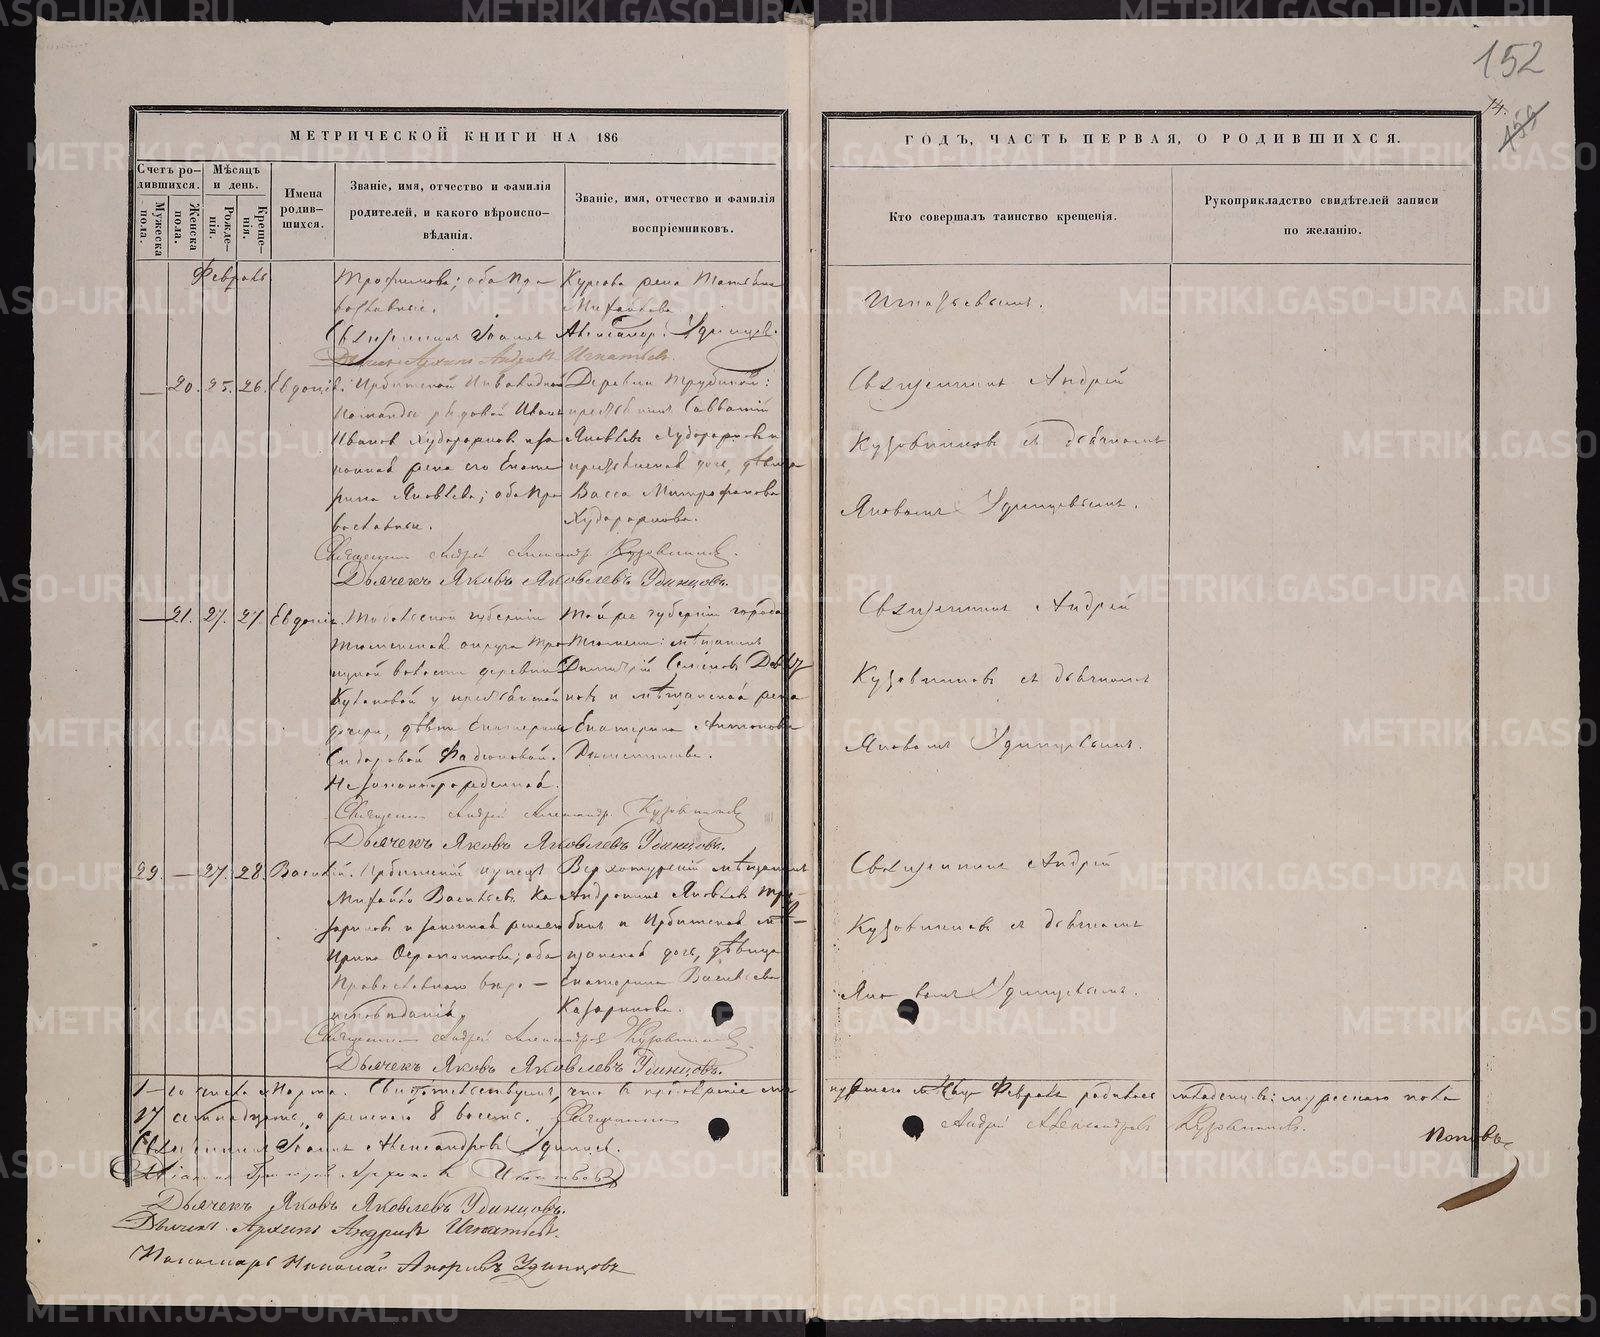 152
74.
МЕТРИЧЕСКОЙ КНИГИ НА 186
ГОДЪ, ЧАСТЬ ПЕРВАЯ, О РОДИВШИХСЯ.
Счетъ родившихся.
Мѣсяцъ и день.
Мужеска пола.
Женска пола.
Рожденія.
Крещенія.
Имена родившихся.
Званіе, имя, отчество и фамилія
родителей, и какого вѣроиспо-
вѣданія.
Званіе, имя, отчество и фамилія
воспріемниковъ.
Кто совершалъ таинство крещенія.
Рукоприкладство свидѣтелей записи
по желанію.
Февраль
Трофимова; оба Пра
вославные.
жена
Михайлова
Игнатьевымъ.
Священникъ Іоаннъ Александр. Удинцев.
Дьячекъ Архипъ Андреевъ Игнатьевъ.
— 20. 25. 26. Евдокія.
Ирбитской Инвалидной
Команды рядовой Иванъ
Ивановъ Худорожковъ и за
конная жена его Екате
рина Яковлева; оба Пра
вославные.
Деревни Трубиной:
крестьянинъ Савватій
Яковлевъ Худорожковъ и
крестьянская дочь, дѣвица
Васса Митрофанова
Худорожкова.
Священникъ Андрей
Кузовниковъ съ дьячкомъ
Яковомъ Удинцевымъ.
Священникъ Андрей Александр. Кузовниковъ.
Дьячекъ Яковъ Яковлевъ Удинцовъ.
— 21. 27. 27. Евдокія.
Тобольской губерніи
Тюменскаго округа Тро
ицкой волости деревни
у крестьянской
дочери, дѣвки Екатерины
Сидоровой
Незаконнорожденная.
Той же губерніи города
Тюмени: мѣщанинъ
Димитрій Семеновъ Давыд
овъ и мѣщанская жена
Екатерина Антонова
Священникъ Андрей
Кузовниковъ съ дьячкомъ
Яковомъ Удинцевымъ.
Священникъ Андрей Александр. Кузовниковъ
Дьячекъ Яковъ Яковлевъ Удинцовъ.
29. — 27. 28. Василій.
Ирбитскій купецъ
Михайло Васильевъ Ка
зариновъ и законная жена его
Ирина Ферапонтова; оба
Православнаго веро—
исповѣданія.
Верхотурскій мѣщанинъ
Андроникъ Яковлевъ Тру-
бинъ и Ирбитская мѣ—
щанская дочь, дѣвица
Екатерина Васильева
Казаринова.
Священникъ Андрей
Кузовниковъ съ дьячкомъ
Яковомъ Удинцевымъ.
Священникъ Андрей Александровъ Кузовниковъ
Дьячекъ Яковъ Яковлевъ Удинцовъ.
1—го числа Марта. Свидѣтельствуемъ, что въ
Февралѣ родилось младенцевъ: мужескаго пола
17 семнадцать, а женскаго 8 восемь. Священникъ
Андрей Александровъ Кузовниковъ.
Попова
Священникъ Іоаннъ Александровъ Удинцев.
Діаконъ Григорій Игнатьевъ
Дьячекъ Яковъ Яковлевъ Удинцовъ.
Дьячекъ Архипъ Андреевъ Игнатьевъ.
Пономарь Николай Андреевъ Удинцовъ
METRIKI.GASO-URAL.RU